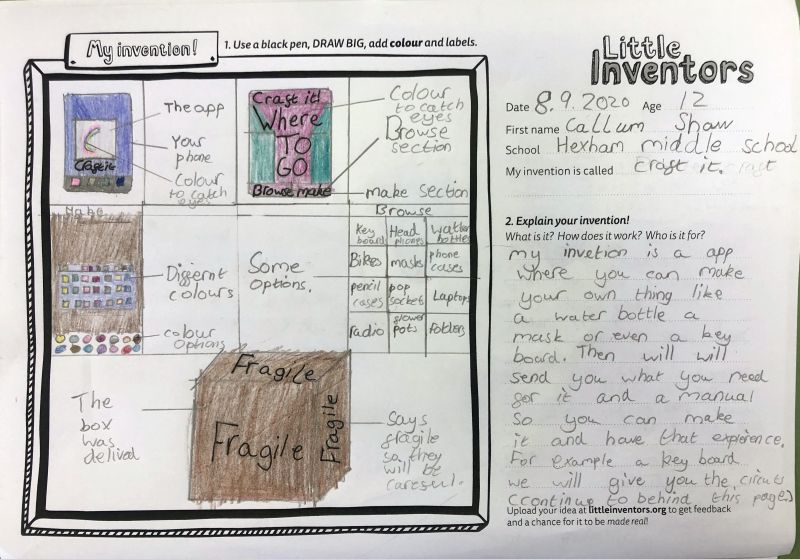 My invention!
1. Use a black pen, DRAW BIG, add colour and labels.
Little
Inventors
Date 8.9.2020 Age 12
First name Callum Shaw
School Hexham middle school
My invention is called craft it.
2. Explain your invention!
What is it? How does it work? Who is it for?
my invetion is a app
where you can make
your own thing like
a water bottle a
mask or even a key
board. Then will will
send you what you need
for it and a manual
So you can make
it and have that expierence.
For example a key board
we will give you the circuits
(continue to behind this page.)
Upload your idea at littleinventors.org to get feedback
and a chance for it to be made real!
The app
Your
phone
Colour
to catch
eyes
Craft it
Craft it!
Where
TO
GO
Browse make
Colour
to catch
eyes
Browse
section
make section
Make
Differnt
colours
colour
options
Some
options.
Browse
key board
Head phones
water bottles
Bikes
masks
phone cases
pencil cases
pop sockets
Laptops
radio
flower pots
folders
The
box
was
delived
Fragile
Fragile
Fragile
Says
fragile
so they
will be
careful.